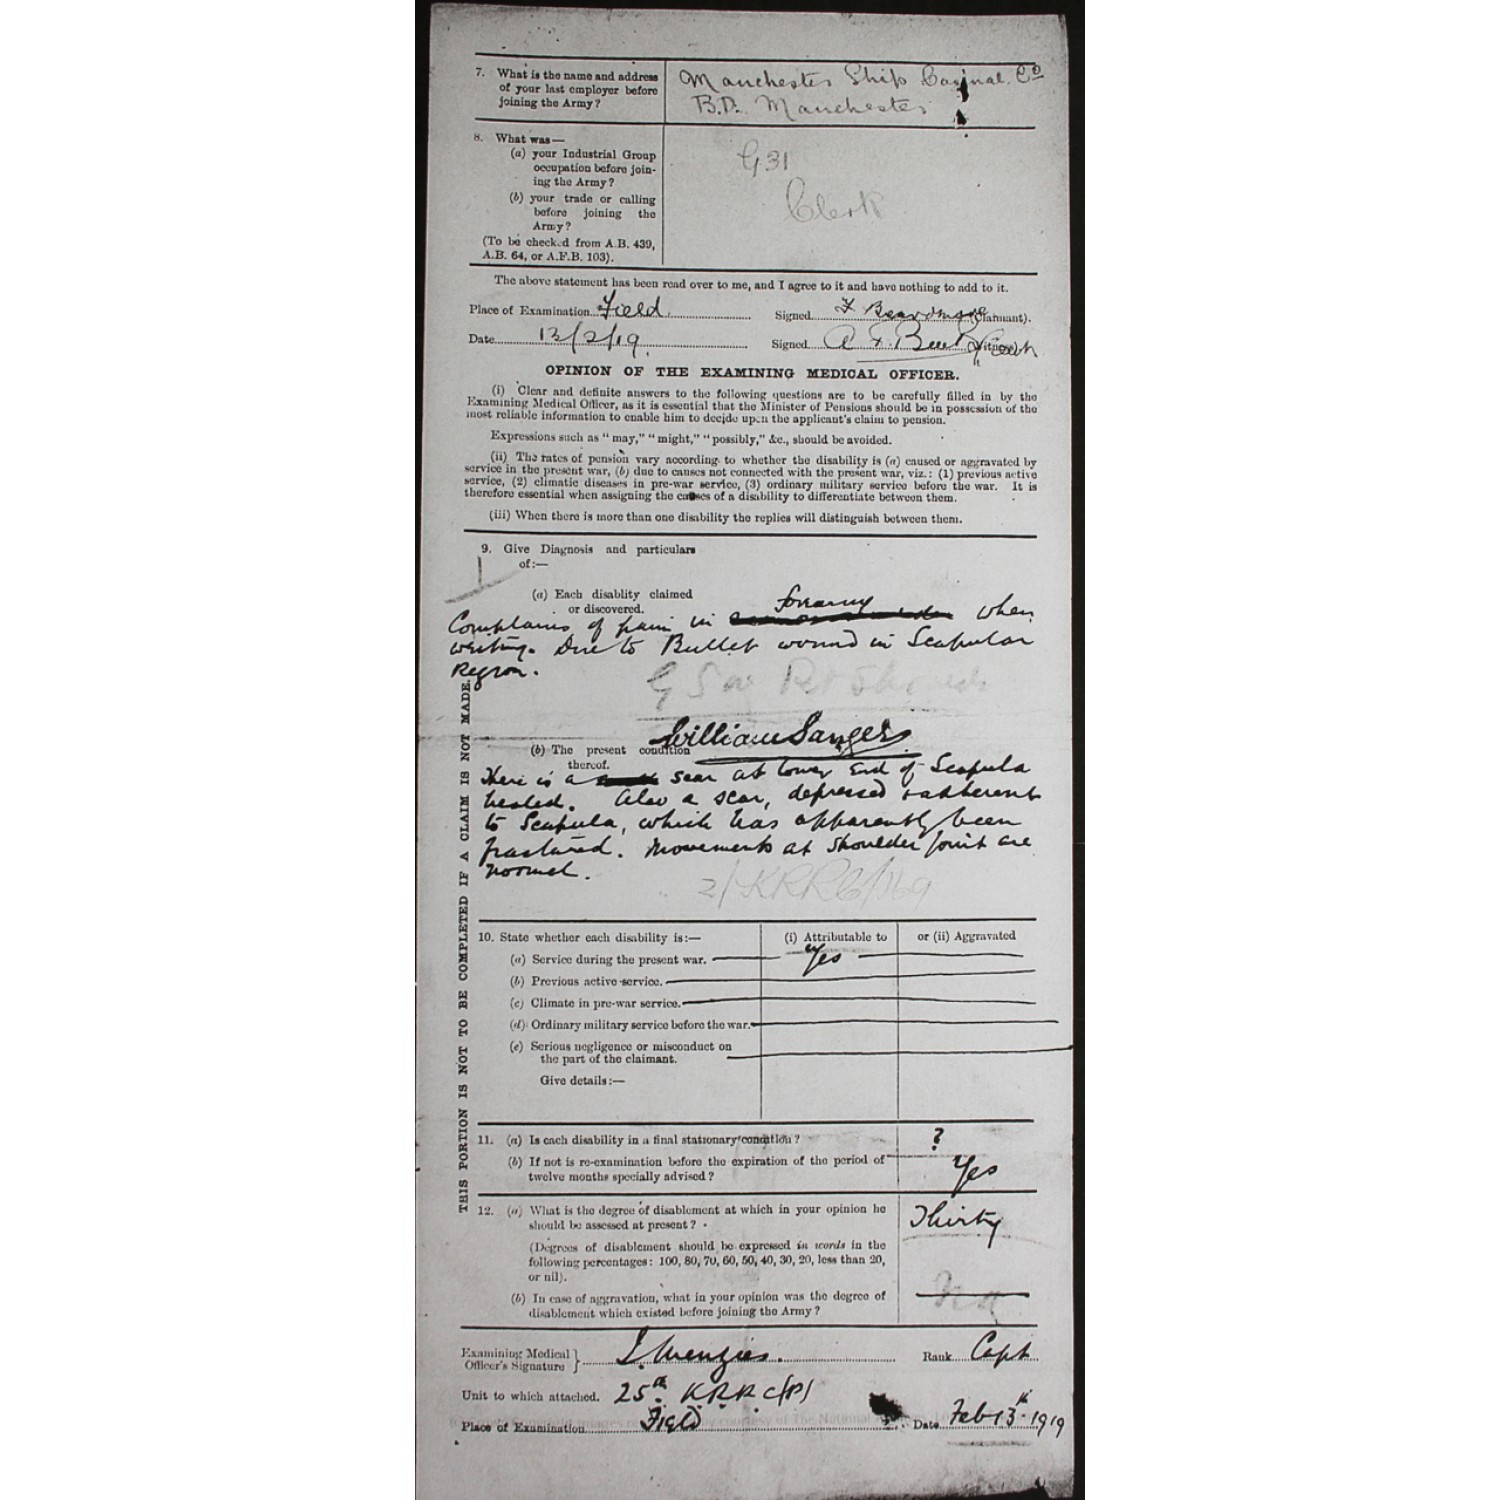 7. What is the name and address
of your last employer before
joining the Army?
Manchester Ship Canal Co
B.D. Manchester
8. What was—
(a) your Industrial Group
occupation before join-
ing the Army?
G 31
(b) your trade or calling
before joining the
Army?
Clerk
(To be checked from A.B. 439,
A.B. 64, or A.F.B. 103).
The above statement has been read over to me, and I agree to it and have nothing to add to it.
Place of Examination Field Signed F Beardmore (Claimant).
Date 13/2/19 Signed (Witness)
OPINION OF THE EXAMINING MEDICAL OFFICER.
(i) Clear and definite answers to the following questions are to be carefully filled in by the
Examining Medical Officer, as it is essential that the Minister of Pensions should be in possession of the
most reliable information to enable him to decide upon the applicant's claim to pension.
Expressions such as "may," "might," "possibly," &c., should be avoided.
(ii) The rates of pension vary according to whether the disability is (a) caused or aggravated by
service in the present war, (b) due to causes not connected with the present war, viz.: (1) previous active
service, (2) climatic diseases in pre-war service, (3) ordinary military service before the war. It is
therefore essential when assigning the causes of a disability to differentiate between them.
(iii) When there is more than one disability the replies will distinguish between them.
THIS PORTION IS NOT TO BE COMPLETED IF A CLAIM IS NOT MADE.
9. Give Diagnosis and particulars
of:—
(a) Each disablity claimed
or discovered.
Complains of pain in forearm when
writing. Due to Bullet wound in Scapular
Region.
G S W Rt Shoulder
William Sanger
(b) The present condition
thereof.
There is a scar at lower End of Scapula
healed. Also a scar, depressed & adherent
to Scapula, which has apparently been
fractured. Movements at shoulder joint are
normal.
2/KRRC/169
10. State whether each disability is:— (i) Attributable to or (ii) Aggravated
(a) Service during the present war. Yes
(b) Previous active service.
(c) Climate in pre-war service.
(d) Ordinary military service before the war.
(e) Serious negligence or misconduct on
the part of the claimant.
Give details:—
11. (a) Is each disability in a final stationary condition? ?
(b) If not is re-examination before the expiration of the period of
twelve months specially advised? Yes
12. (a) What is the degree of disablement at which in your opinion he
should be assessed at present? Thirty
(Degrees of disablement should be expressed in words in the
following percentages: 100, 80, 70, 60, 50, 40, 30, 20, less than 20,
or nil).
(b) In case of aggravation, what in your opinion was the degree of
disablement which existed before joining the Army?
Examining Medical
Officer's Signature } J. Menzies. Rank Capt.
Unit to which attached. 25th K.R.R.C (P)
Place of Examination Field Date Feb 13th 1919